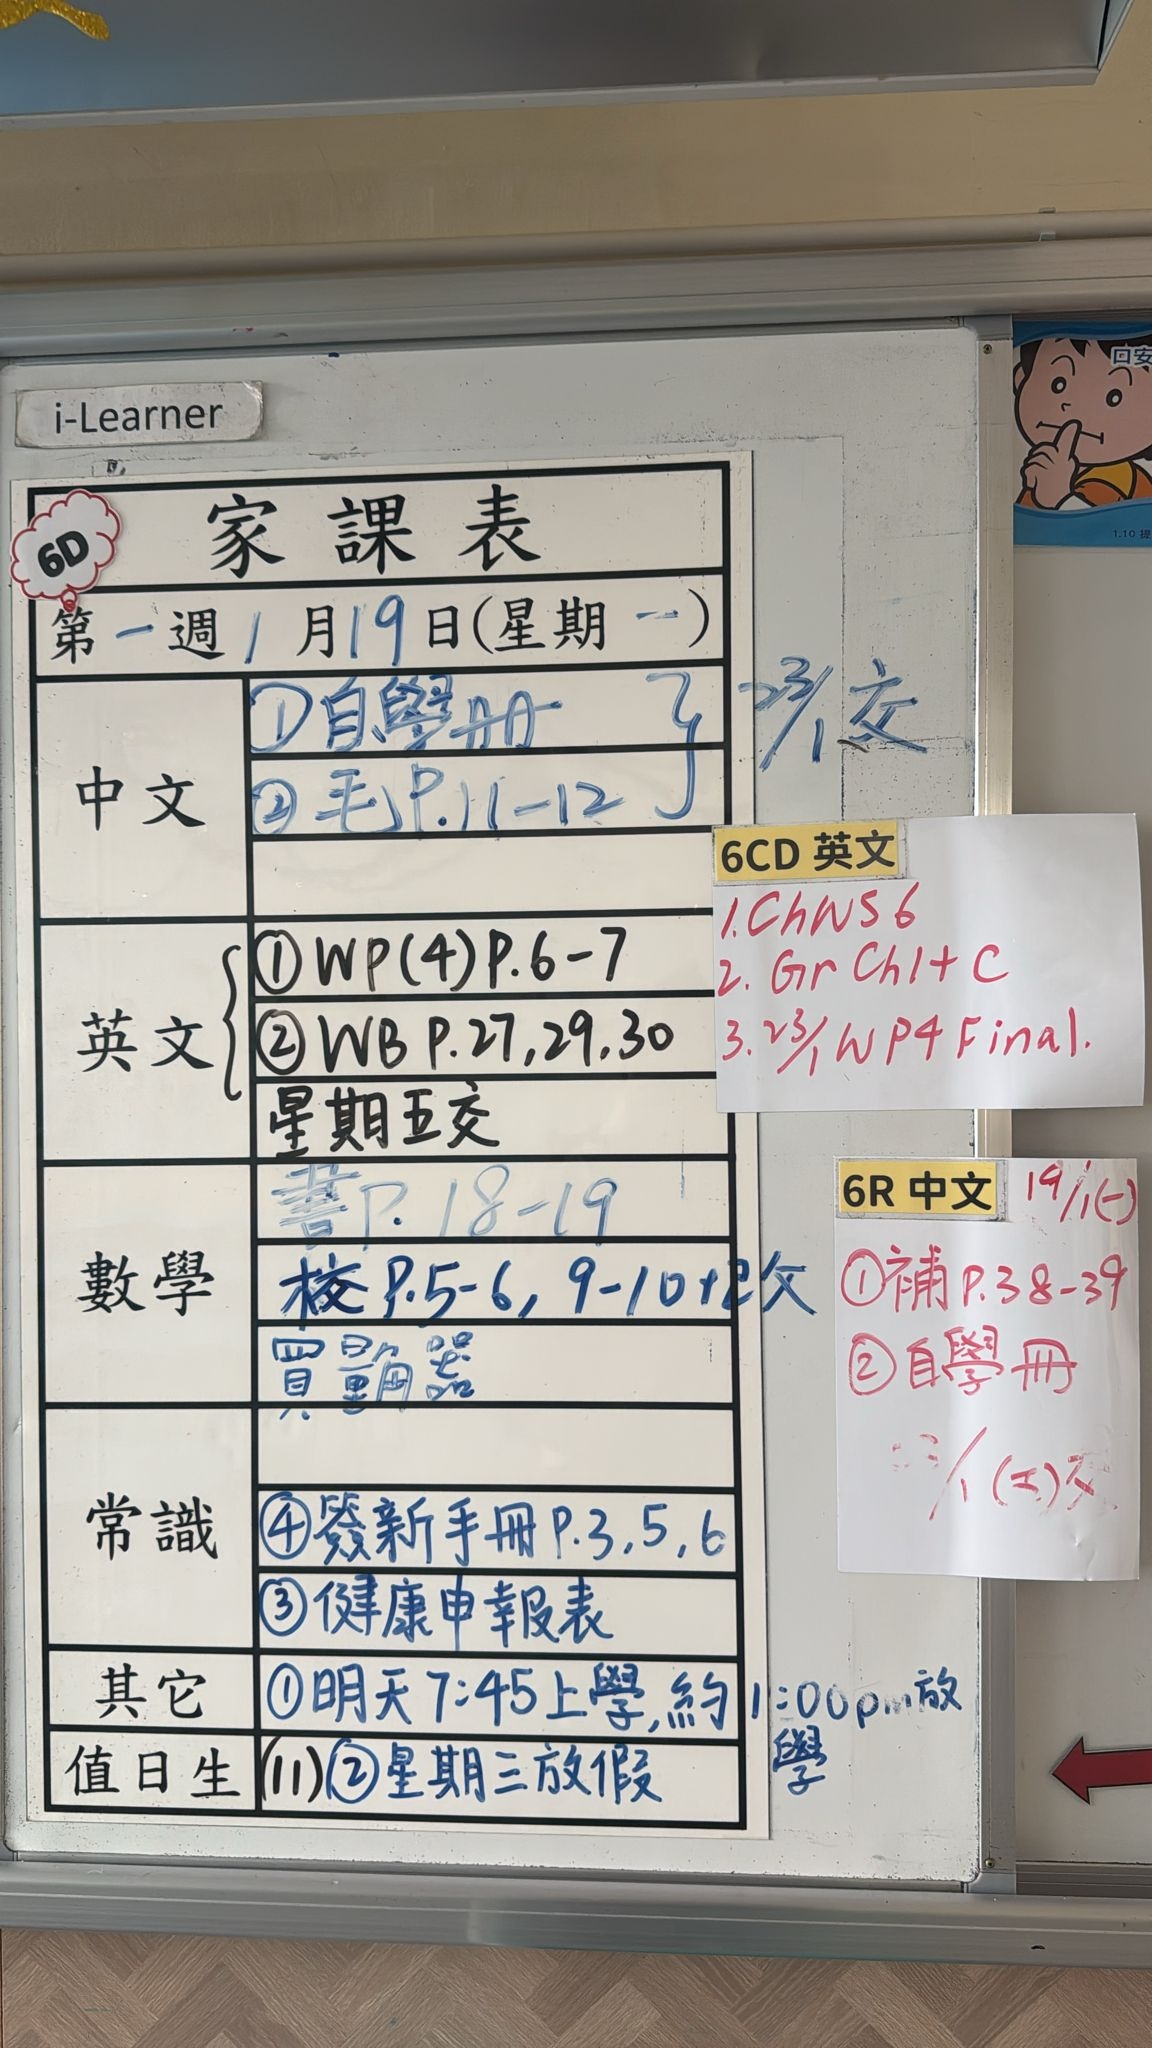 i-Learner
6D
家課表
第一週1月19日(星期一)
中文
①自學冊
②毛P.11-12
23/1交
英文
①WP(4)P.6-7
②WB P.27,29,30
星期五交
數學
書P.18-19
校P.5-6, 9-10
買量角器
常識
④簽新手冊P.3,5,6
③健康申報表
其它
①明天7:45上學,約1:00pm放
學
值日生
(11)②星期三放假
6CD 英文
1.ChWS6
2. Gr Ch1+C
3. 23/1 WP4 Final.
6R 中文
19/1(一)
①補P.38-39
②自學冊
/1(五)交
口安
1.10 提